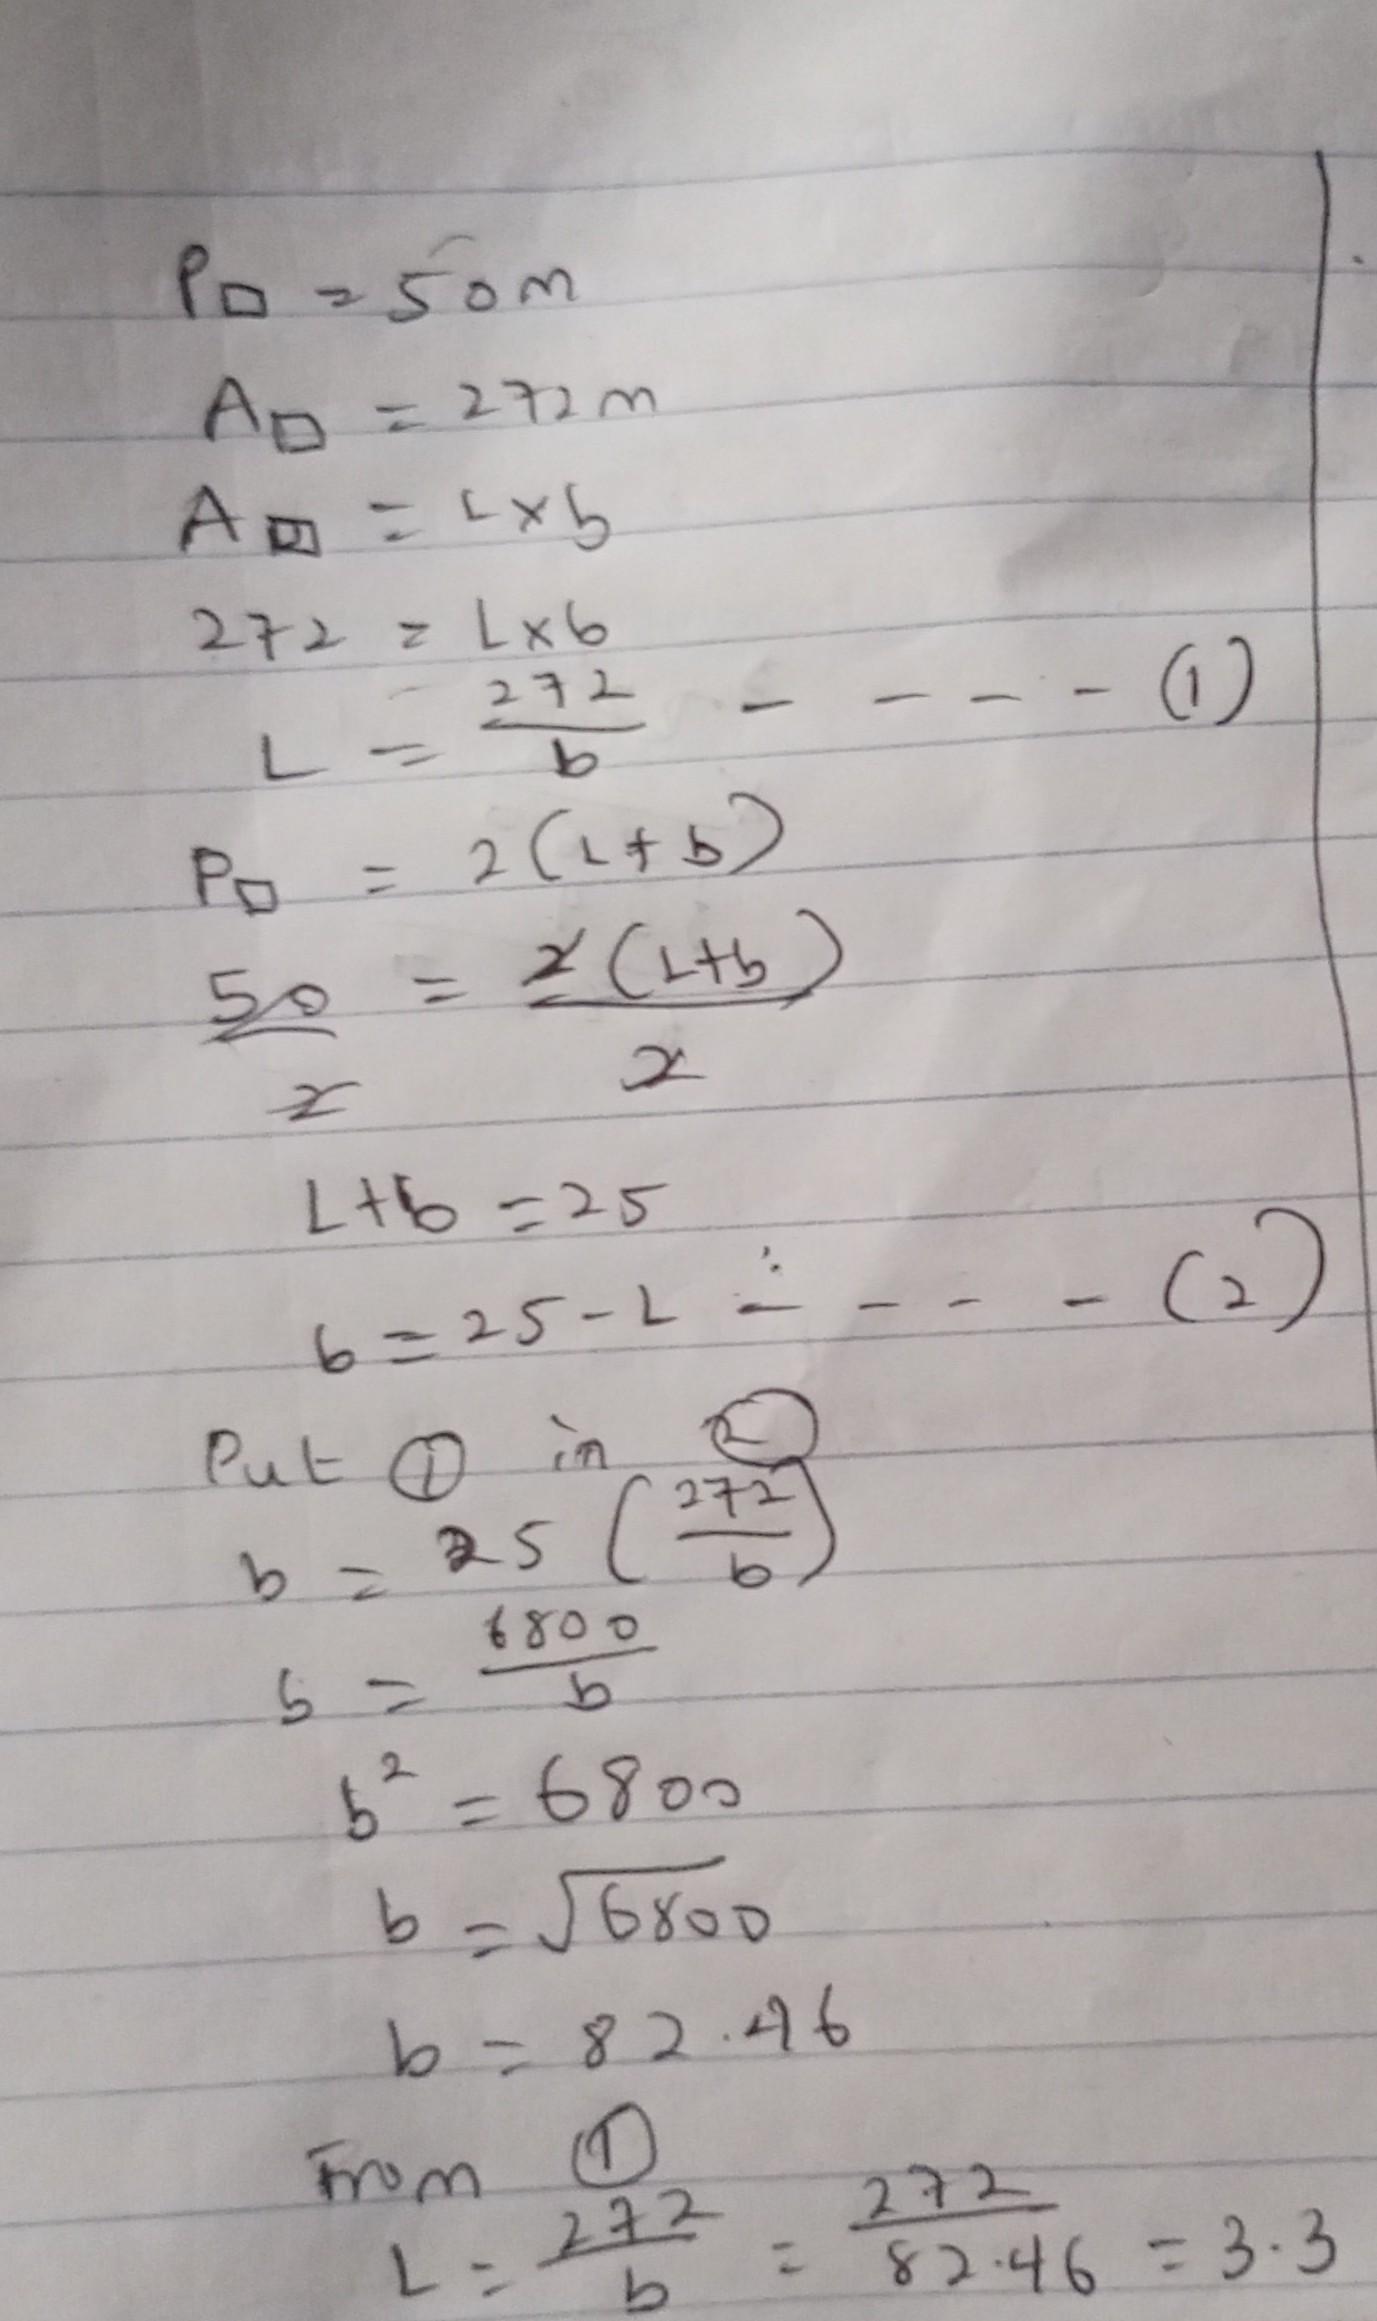 P▭ = 50m
A▭ = 272m
A▭ = L×b
272 = L×b
L = 272/b - - - - - (1)
P▭ = 2(L+b)
50/2 = 2(L+b)/2
L+b = 25
b = 25-L - - - - (2)
Put ① in ②
b = 25(272/b)
b = 6800/b
b² = 6800
b = √6800
b = 82.46
From ①
L = 272/b = 272/82.46 = 3.3